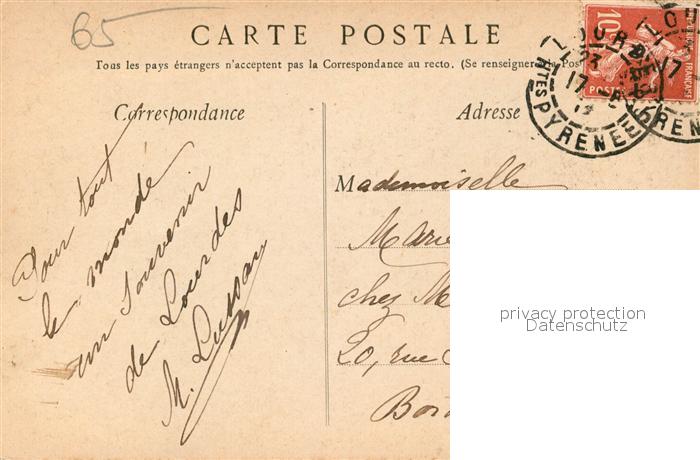 65
CARTE POSTALE
Tous les pays étrangers n'acceptent pas la Correspondance au recto. (Se renseigner à la Pos
Correspondance
Adresse
Pour tout
le monde
un souvenir
de Lourdes
M. Lussan
Mademoiselle
Marie
chez M
20, rue
Bor
10
POSTES
FRANÇAISE
LOURDES
17
HTES PYRENEES
17
PYRENEES
privacy protection
Datenschutz